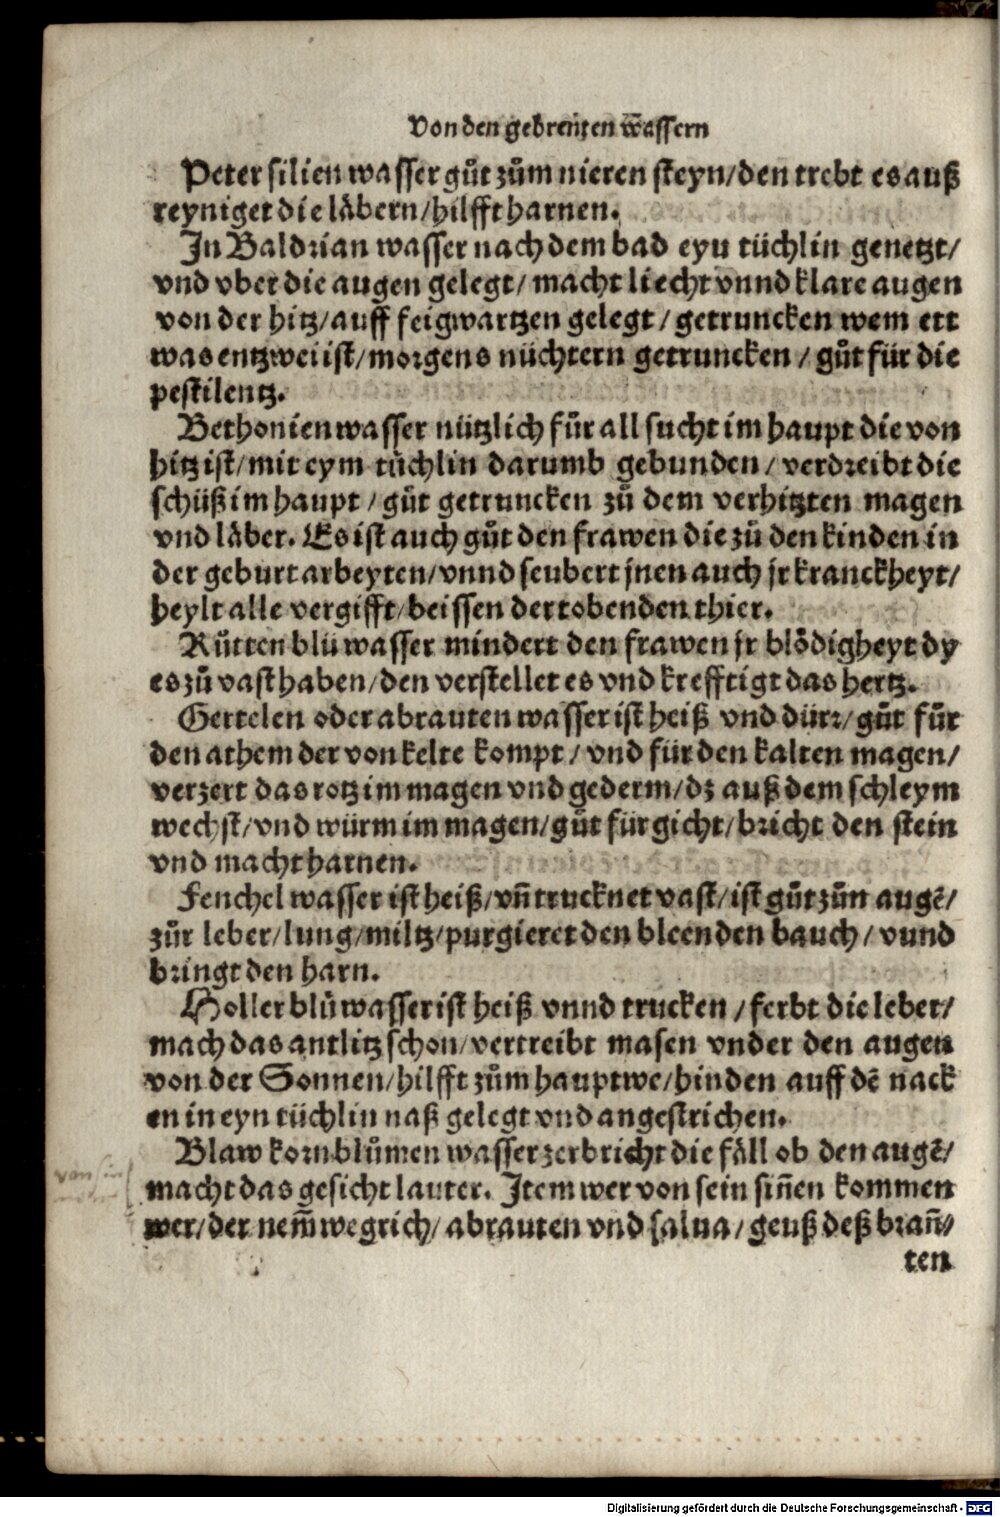 Von den gebrenten wassern
Petersilien wasser gůt zům nieren steyn/den trebt es auß
reyniget die låbern/hilfft harnen.
In Baldrian wasser nach dem bad eyn tüchlin genetzt/
vnd vber die augen gelegt/ macht liecht vnnd klare augen
von der hitz/auff feigwartzen gelegt/ getruncken wem ett
was entzwei ist/morgens nüchtern getruncken/ gůt für die
pestilentz.
Bethonien wasser nützlich für all sucht im haupt die von
hitz ist/mit eym tüchlin darumb gebunden/ verdreibt die
schüß im haupt/ gůt getruncken zů dem verhitzten magen
vnd låber. Es ist auch gůt den frawen die zů den kinden in
der geburt arbeyten/vnnd seubert jnen auch jr kranckheyt/
heylt alle vergifft/beissen der tobenden thier.
Růtten blü wasser mindert den frawen jr blödigheyt dy
es zů vast haben/den verstellet es vnd krefftigt das hertz.
Gertelen oder abrauten wasser ist heiß vnd dürr/ gůt für
den athem der von kelte kompt/ vnd für den kalten magen/
verzert das rotz im magen vnd gederm/dz auß dem schleym
wechst/vnd würm im magen/gůt für gicht/bricht den stein
vnd macht harnen.
Fenchel wasser ist heiß/vñ trucknet vast/ist gůt zůn augē/
zůr leber/lung/miltz/purgieret den bleenden bauch/ vnnd
bringt den harn.
Holler blů wasser ist heiß vnnd trucken/ferbt die leber/
mach das antlitz schon/vertreibt masen vnder den augen
von der Sonnen/hilfft zům hauptwe/hinden auff dē nack
en in eyn tüchlin naß gelegt vnd angestrichen.
Blaw kornblůmen wasser zerbricht die fåll ob den augē/
macht das gesicht lauter. Item wer von sein siñen kommen
wer/der nem̃ wegrich/ abrauten vnd salua/ geuß deß brañ/
ten
Digitalisierung gefördert durch die Deutsche Forschungsgemeinschaft - DFG